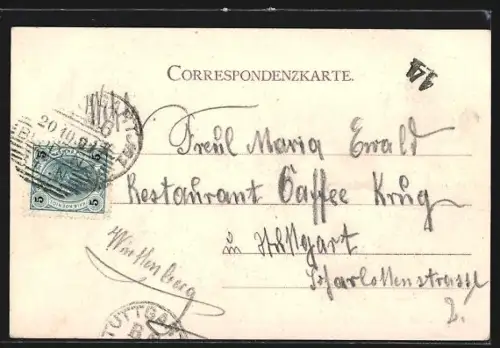 CORRESPONDENZKARTE.
14
20 10
5 5
5 5
Freul Maria Ewald
Restaurant Caffee Krug
in Stuttgart
Württemberg
Scharlottenstrasse
2.
STUTTGART